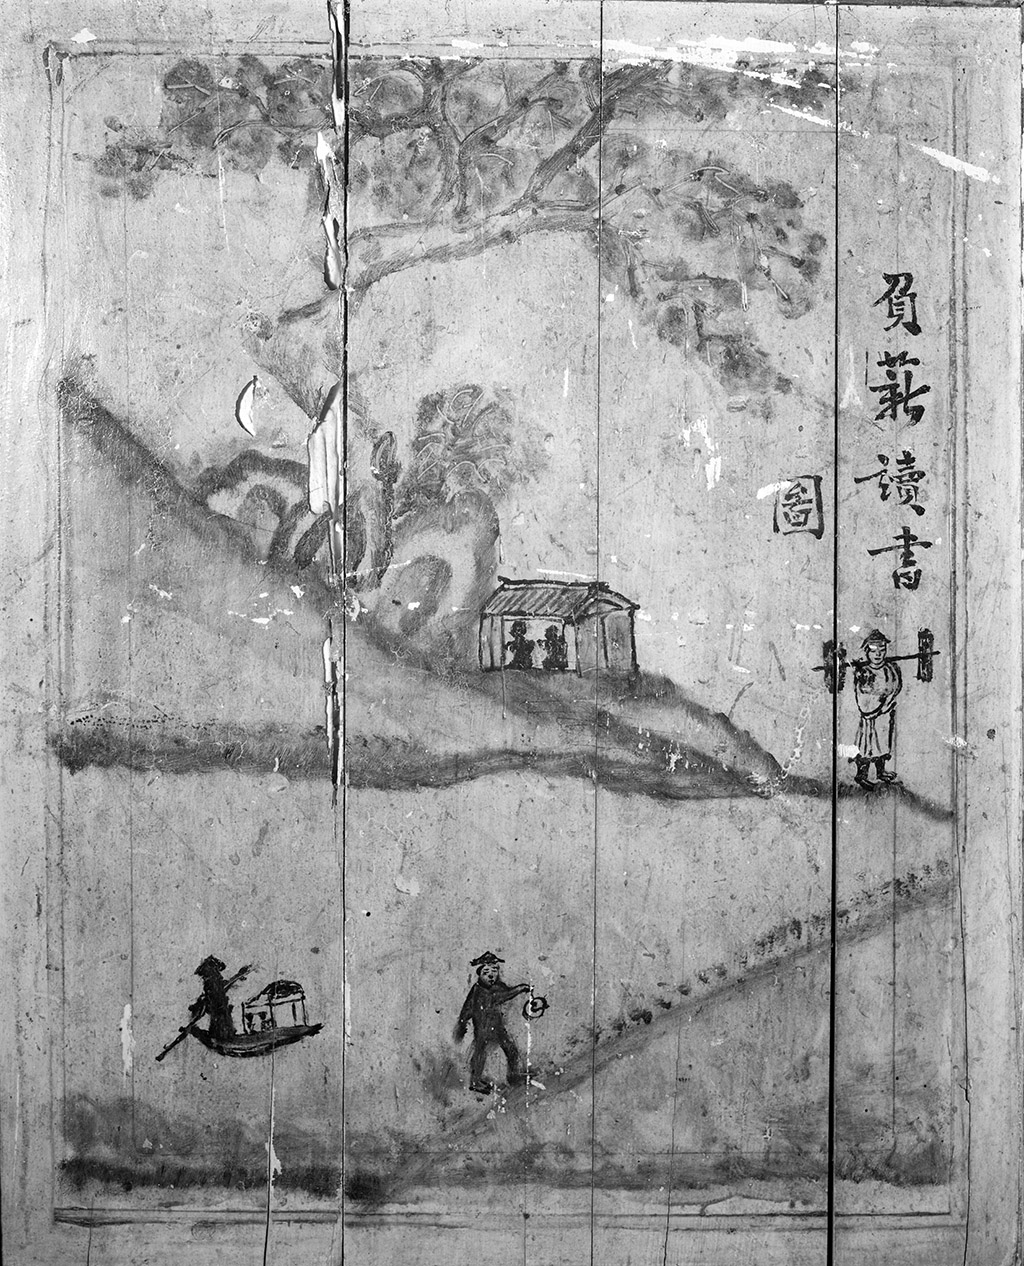 負薪讀書
圖